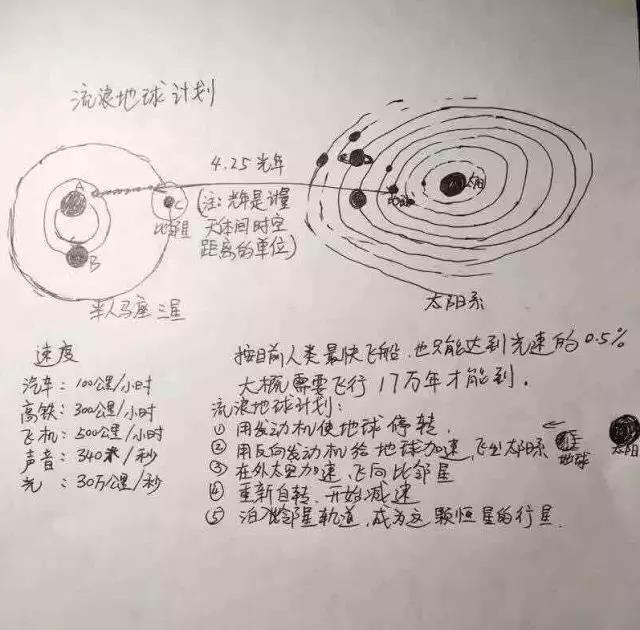 流浪地球计划
4.25光年
(注:光年是计量
天体间时空
距离的单位)
A
B
C
比邻星
半人马座三星
地球
太阳
太阳系
速度
汽车:100公里/小时
高铁:300公里/小时
飞机:500公里/小时
声音:340米/秒
光:30万公里/秒
按目前人类最快飞船,也只能达到光速的0.5%
大概需要飞行17万年才能到.
流浪地球计划:
① 用发动机使地球停转.
② 用反向发动机给地球加速,飞出太阳系
③ 在外太空加速,飞向比邻星
④ 重新自转,开始减速
⑤ 泊入比邻星轨道,成为这颗恒星的行星.
地球
太阳